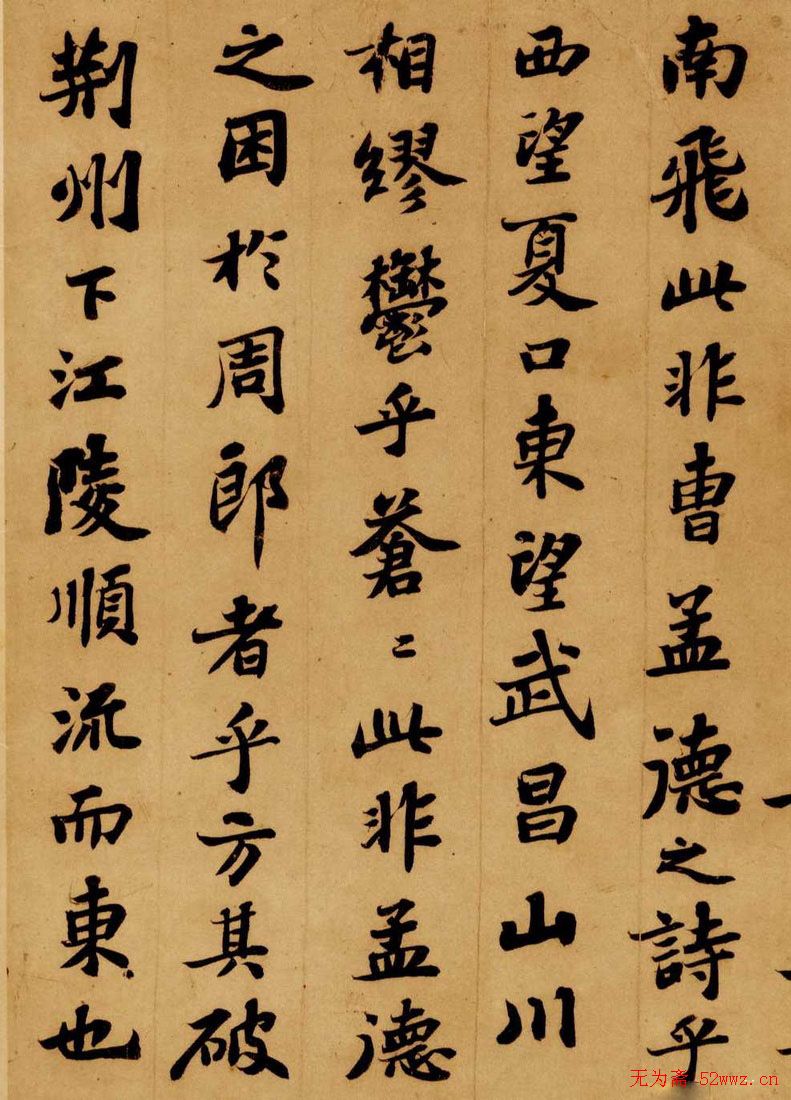 南飛此非曹孟德之詩乎
西望夏口東望武昌山川
相繆欝乎蒼〻此非孟德
之困於周郎者乎方其破
荆州下江陵順流而東也
无为斋-52wwz.cn